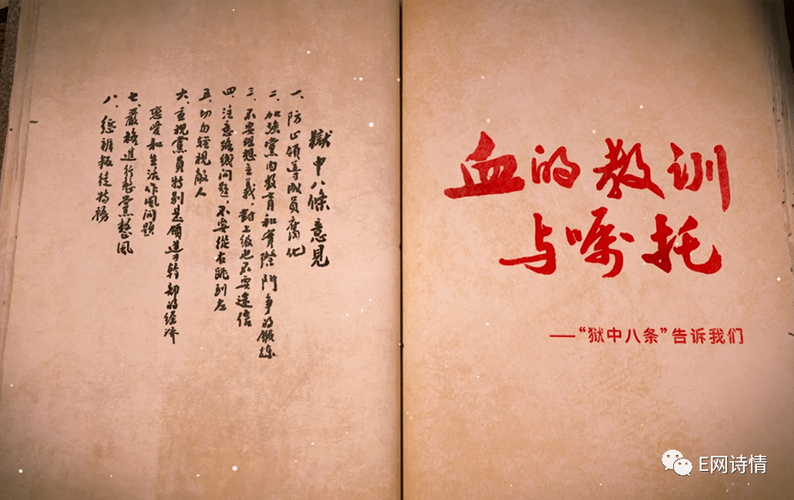 獄中八條意見
一、防止領導成員腐化
二、加強黨内教育和實際鬥爭的鍛煉
三、不要理想主義，對上級也不要迷信
四、注意路綫問題，不要從右跳到左
五、切勿輕視敵人
六、重視黨員特别是領導幹部的經濟
戀愛和生活作風問題
七、嚴格進行整黨整風
八、懲辦叛徒特務
血的教训
与嘱托
——“狱中八条”告诉我们
E网诗情